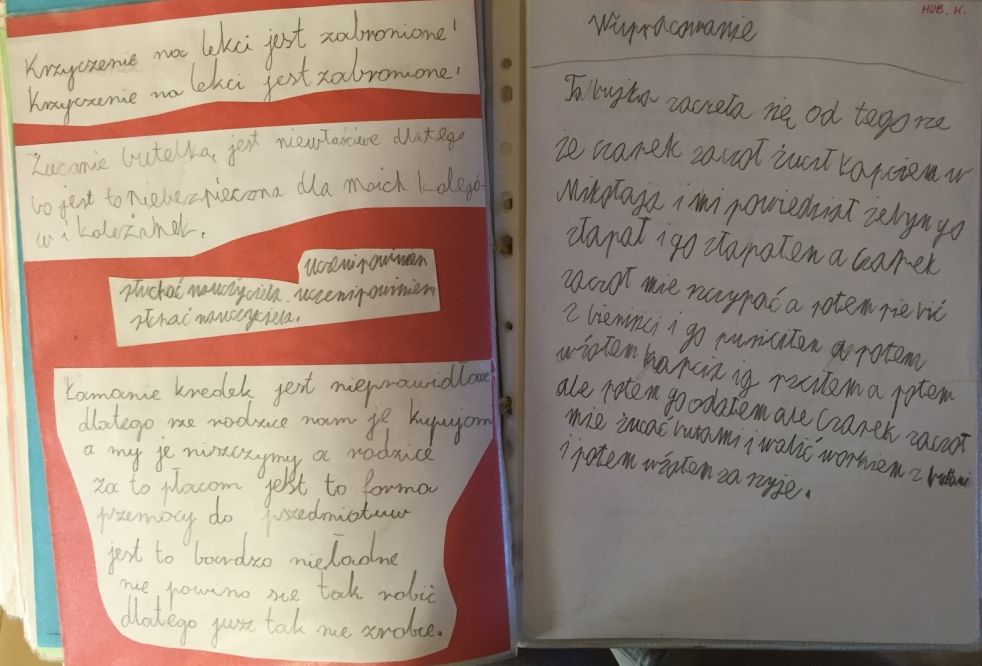 Krzyczenie na lekci jest zabronione!
Krzyczenie na lekci jest zabronione!
Żucanie butelką jest niewłaściwe dlatego
bo jest to niebezpieczna dla moich kolegó-
w i koleżanek.
uczeń powinien
słuchać nauczyciela. uczeń powinien
słuchać nauczyciela.
Łamanie kredek jest nieprawidłowe
dlatego rze rodzice nam je kupujom
a my je niszczymy a rodzice
za to płacom jest to forma
przemocy do przedmiotuw
jest to bardzo nieładne
nie powino sie tak robić
dlatego jusz tak nie zrobie.
HUB. K.
Wypracowanie
Ta bujka zaczeła się od tego rze
że czarek zaczoł żucił kapciem w
Mikołaja i mi powiedział żebym go
złapał i go złapałem a czarek
zaczoł mie szczypać a potem sie bić
z i go puściłem a potem
wziołem kapcia i rzciłem a potem
ale potem go odałem ale Czarek zaczoł
mie żucać butami i walić workiem z butami
i potem wziołem za szyje.